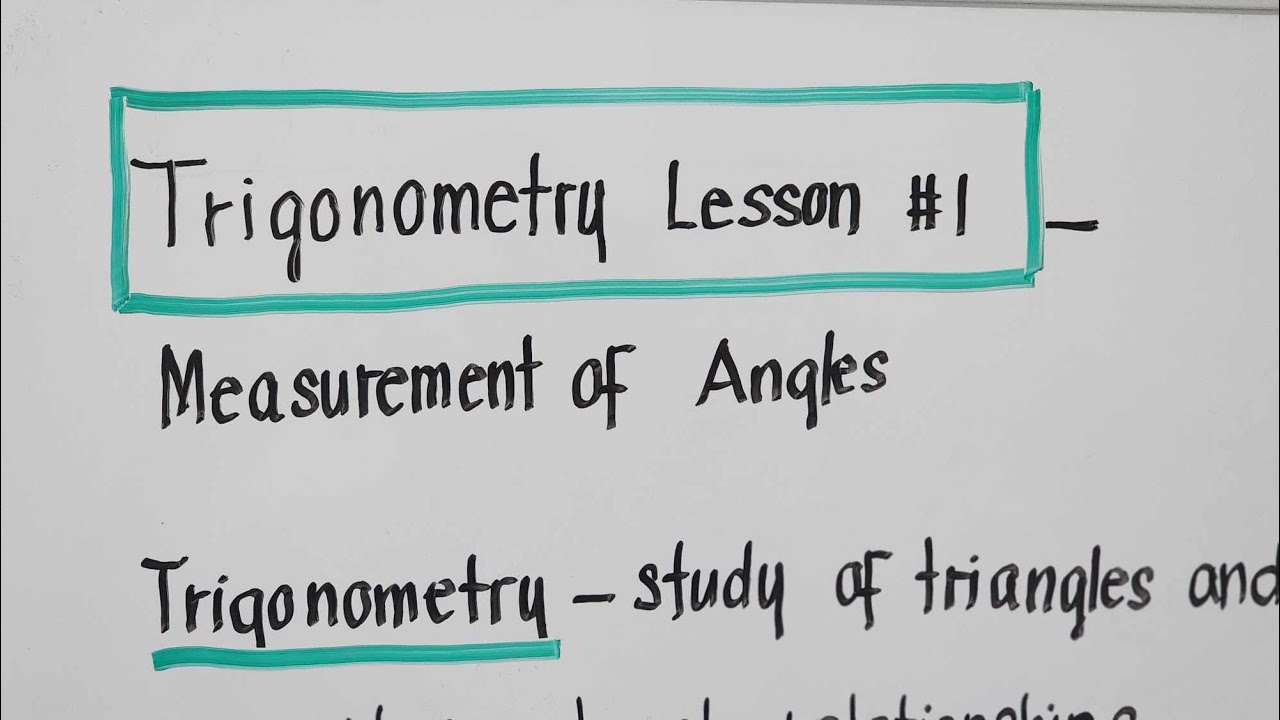 Trigonometry Lesson #1 –
Measurement of Angles
Trigonometry – study of triangles and